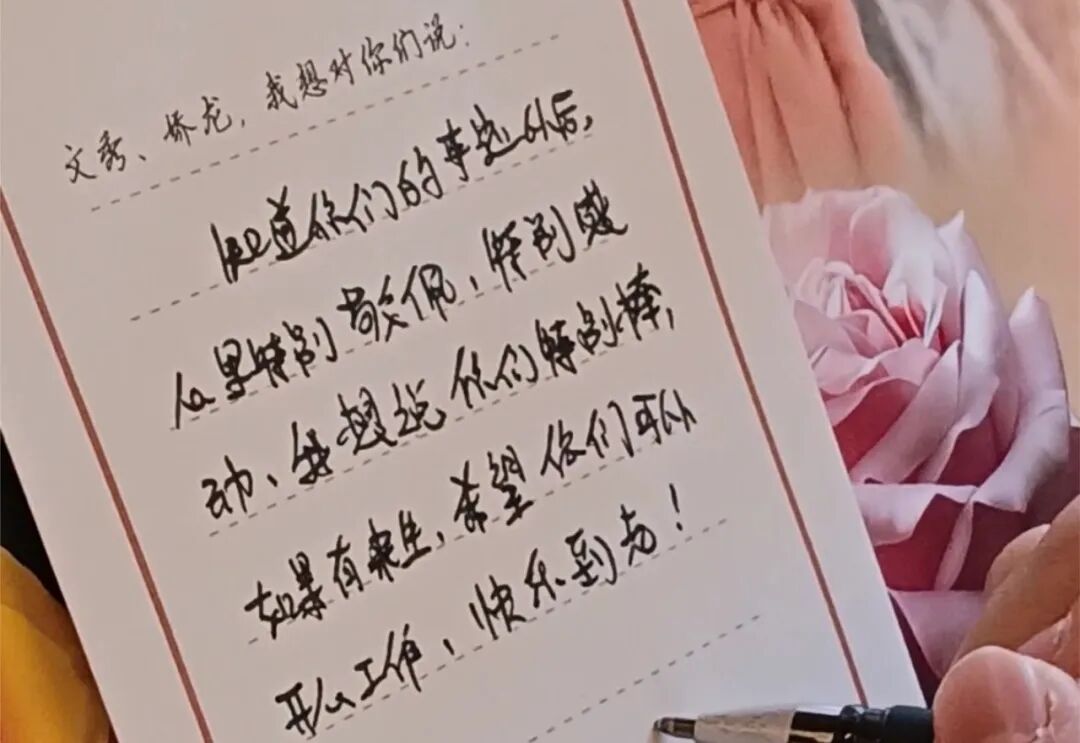 文秀、娇龙，我想对你们说：
知道你们的事迹以后，
心里特别敬佩，特别感
动，我想说你们特别棒，
如果有来生，希望你们可以
开心工作，快乐到老！